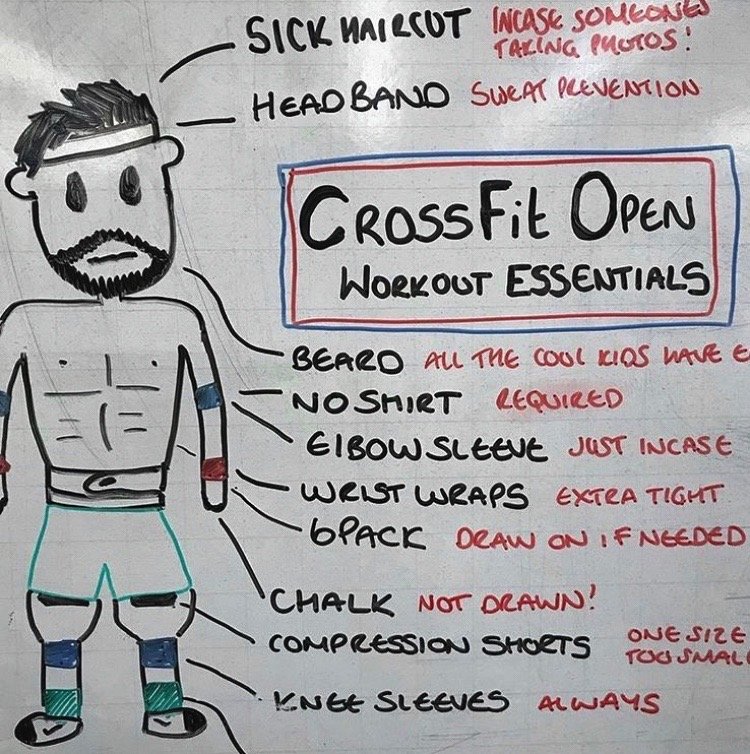 SICK HAIRCUT INCASE SOMEONES
TAKING PHOTOS!
HEADBAND SWEAT PREVENTION
CROSSFIT OPEN
WORKOUT ESSENTIALS
BEARD ALL THE COOL KIDS HAVE
NO SHIRT REQUIRED
ElBOW SLEEVE JUST INCASE
WRIST WRAPS EXTRA TIGHT
6PACK DRAW ON IF NEEDED
CHALK NOT DRAWN!
COMPRESSION SHORTS ONE SIZE
TOO SMALL
KNEE SLEEVES ALWAYS